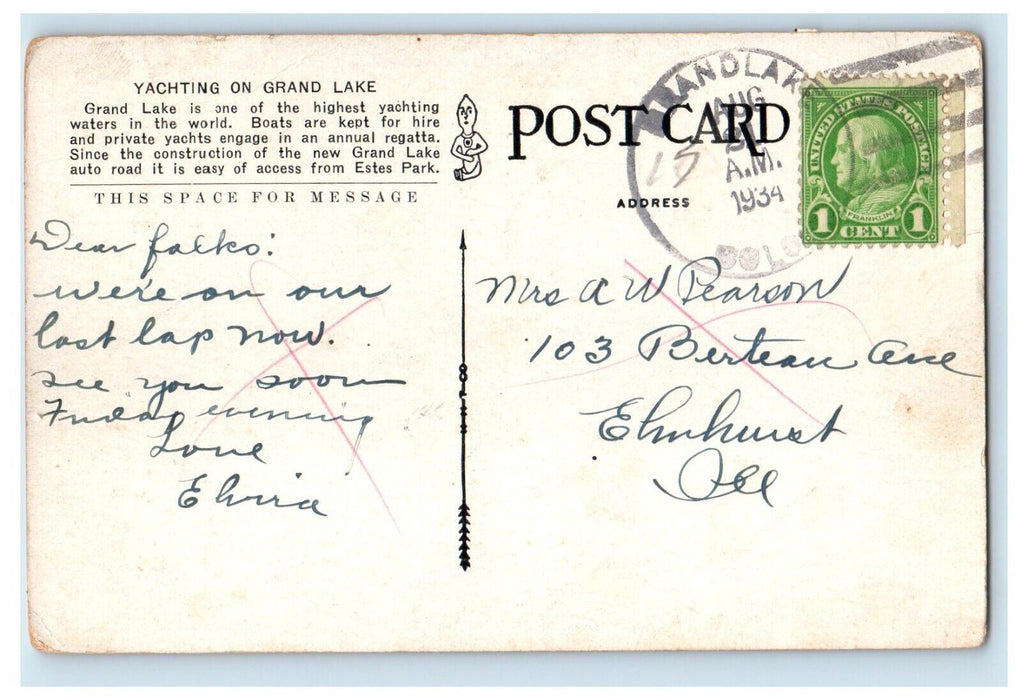 YACHTING ON GRAND LAKE
Grand Lake is one of the highest yachting
waters in the world. Boats are kept for hire
and private yachts engage in an annual regatta.
Since the construction of the new Grand Lake
auto road it is easy of access from Estes Park.
THIS SPACE FOR MESSAGE
Dear folks:
we're on our
last lap now.
see you soon
Friday evening
Love
Elvira
POST CARD
ADDRESS
RANDLAK
AUG
A.M.
1934
COLO
15
UNITED STATES POSTAGE
FRANKLIN
1 CENT 1
Mrs A W Pearson
103 Berteau Ave
Elmhurst
Ill